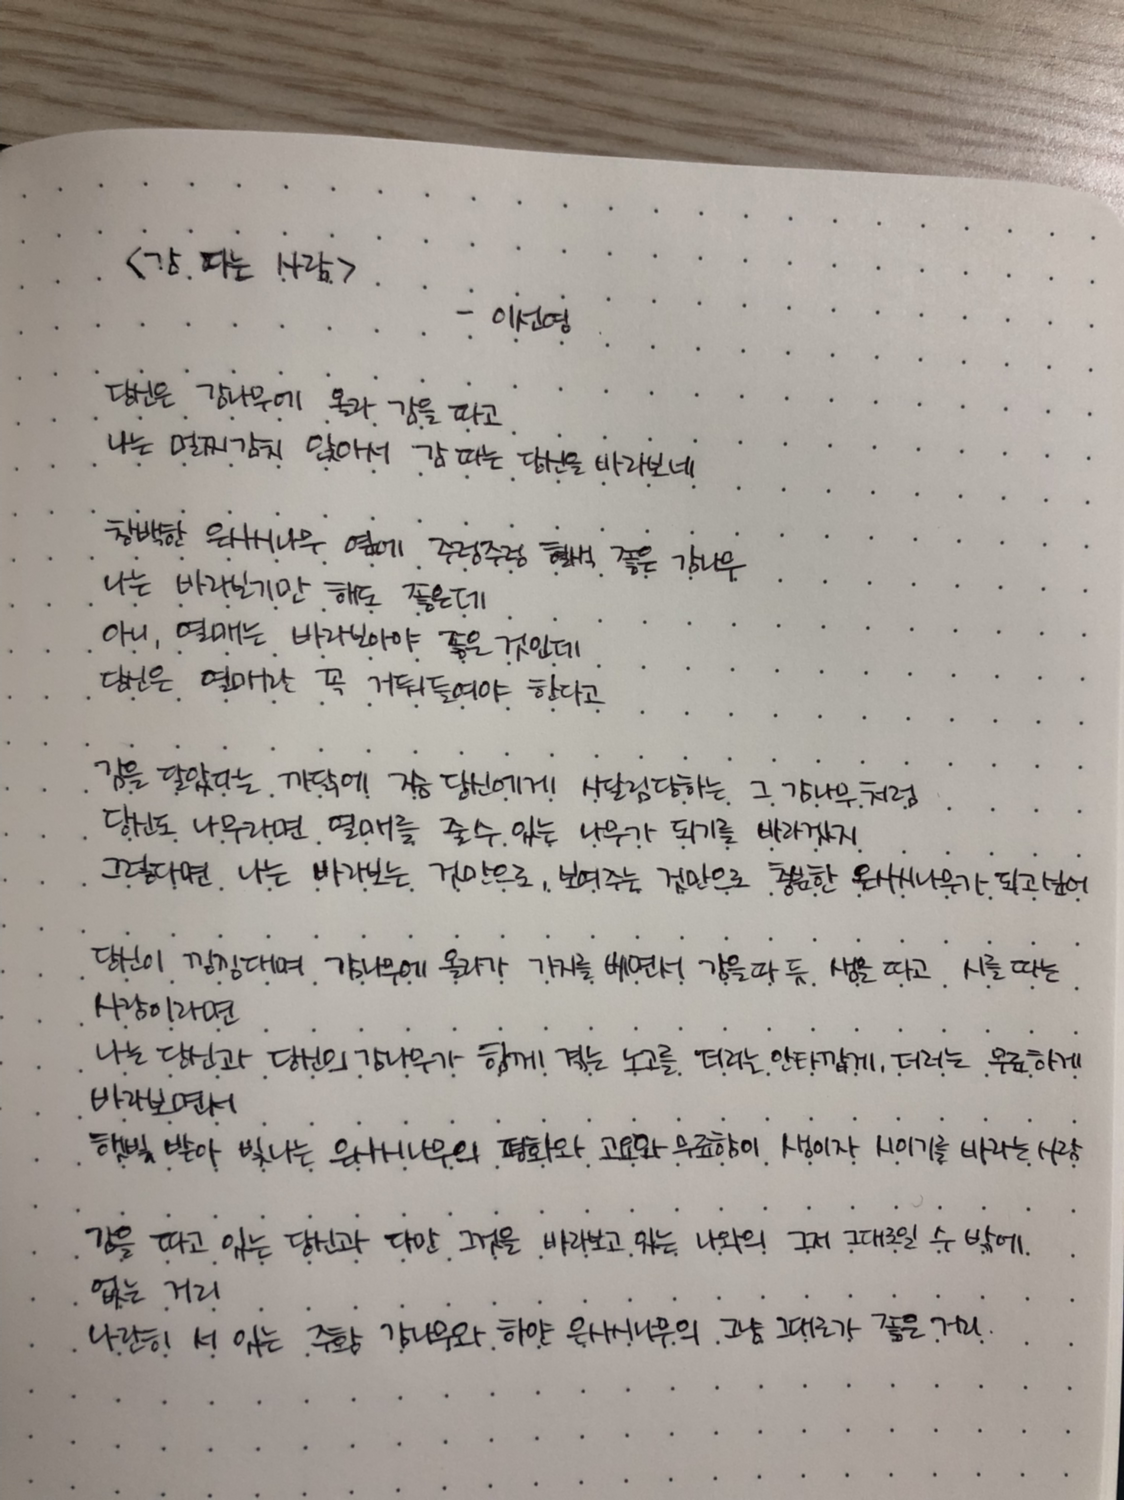 <감 따는 사람>
- 이선영
당신은 감나무에 올라 감을 따고
나는 멀찌감치 앉아서 감 따는 당신을 바라보네
창백한 은사시나무 옆에 주렁주렁 혈색 좋은 감나무
나는 바라보기만 해도 좋은데
아니, 열매는 바라보아야 좋은 것인데
당신은 열매란 꼭 거둬들여야 한다고
감을 달았다는 까닭에 지금 당신에게 시달림당하는 그 감나무처럼
당신도 나무라면 열매를 줄 수 있는 나무가 되기를 바라겠지
그렇다면 나는 바라보는 것만으로, 보여주는 것만으로 충분한 은사시나무가 되고 싶어
당신이 낑낑대며 감나무에 올라가 가지를 베면서 감을 따듯 생을 따고 시를 따는
사람이라면
나는 당신과 당신의 감나무가 함께 겪는 노고를 더러는 안타깝게, 더러는 무료하게
바라보면서
햇빛 받아 빛나는 은사시나무의 평화와 고요와 무료함이 생이자 시이기를 바라는 사람
감을 따고 있는 당신과 다만 그것을 바라보고 있는 나와의 그저 그대로일 수 밖에
없는 거리
나란히 서 있는 주황 감나무와 하얀 은사시나무의 그냥 그대로가 좋은 거리.